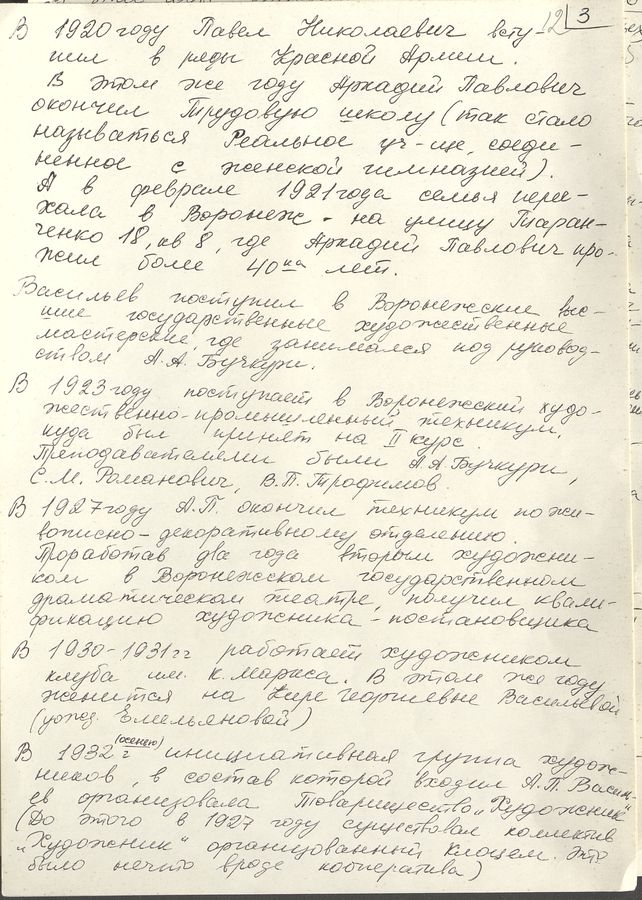 12 3
В 1920 году Павел Николаевич всту-
пил в ряды Красной Армии.
В этом же году Аркадий Павлович
окончил Трудовую школу (так стало
называться Реальное уч-ще, соеди-
ненное с женской гимназией).
А в феврале 1921 года семья пере-
хала в Воронеж - на улицу Таран-
ченко 18, кв 8, где Аркадий Павлович про-
жил более 40ка лет.
Васильев поступил в Воронежские выс-
шие государственные художественные
мастерские, где занимался под руковод-
ством А.А. Бучкури.
В 1923 году поступает в Воронежский худо-
жественно-промышленный техникум,
куда был принят на II курс.
Преподавателями были А.А. Бучкури,
С.М. Романович, В.П. Трофимов.
В 1927 году А.П. окончил техникум по жи-
вописно-декоративному отделению.
Проработав два года вторым художни-
ком в Воронежском государственном
драматическом театре, получил квали-
фикацию художника-постановщика
В 1930-1931 гг работает художником
клуба им. К. Маркса. В этом же году
женится на Кире Георгиевне Васильевой
(урожд. Емельяновой)
В 1932 г (осенью) инициативная группа худож-
ников, в состав которой входил А.П. Василь-
ев организовала Товарищество „Художник"
(До этого в 1927 году существовал коллектив
„Художник" организованный Клоцем. Это
было нечто вроде кооператива)